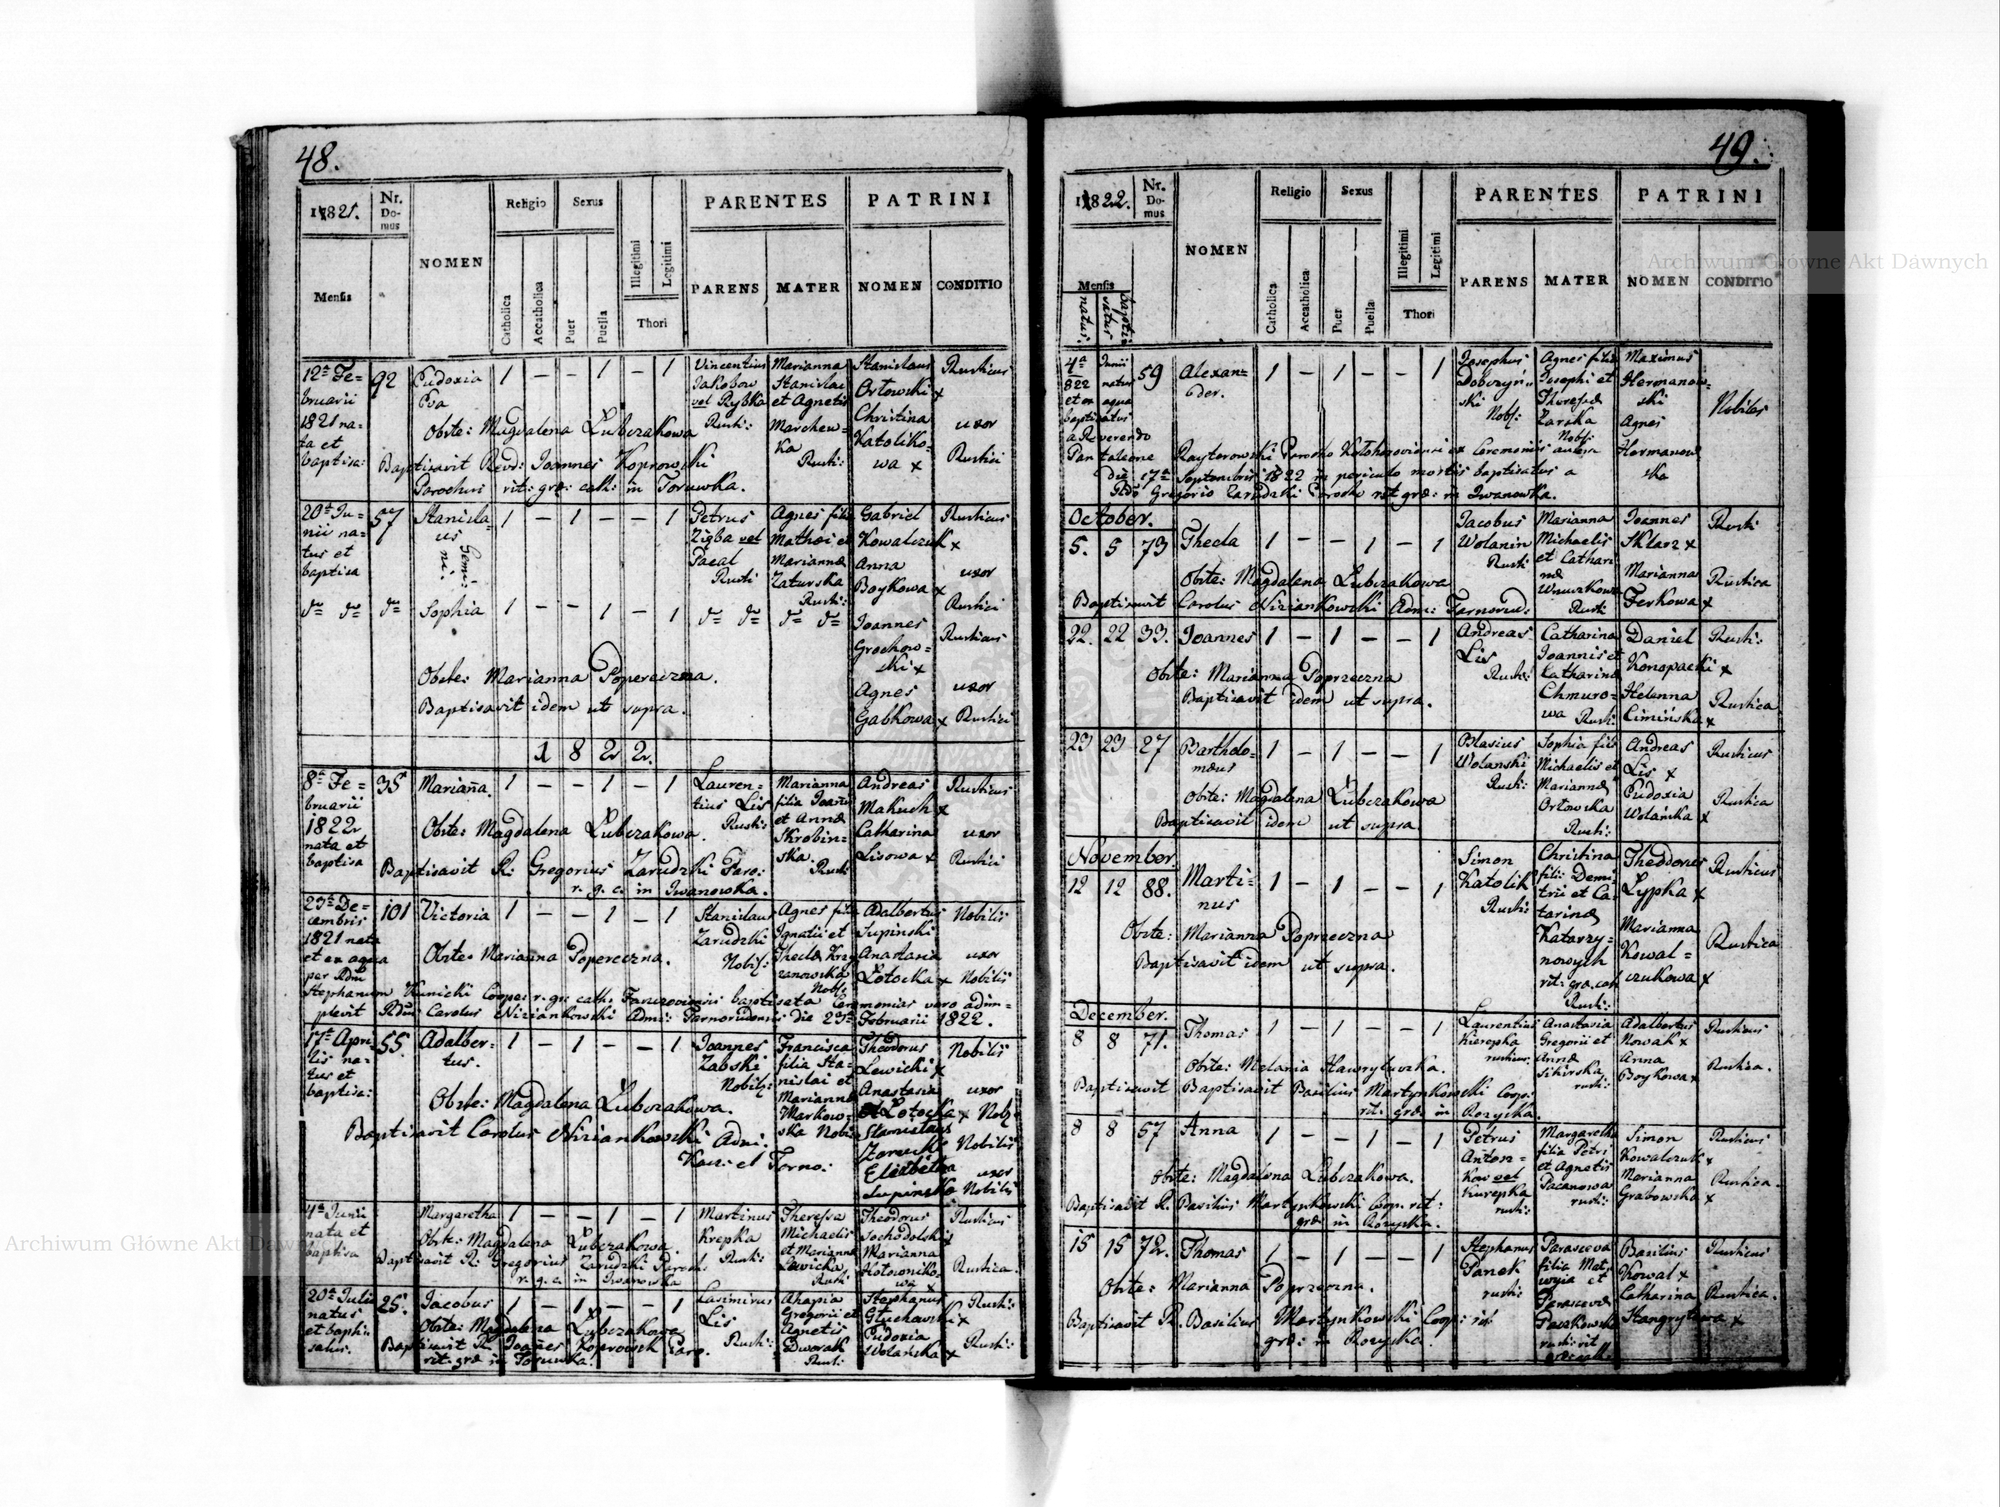 48.
1821.
Nr. Domus
NOMEN
Religio
Sexus
Catholica
Accatholica
Puer
Puella
Illegitimi
Legitimi
Thori
PARENTES
PATRINI
Mensis
PARENS
MATER
NOMEN
CONDITIO
12a Februarii 1821 nata et baptisa: 92 Eudoxia Eva 1 – – 1 – 1 Vincentius Jakobow vel Rybka Rusti: Marianna Stanislai et Agnetis Marchewka Rusti: Stanislaus Orłowski x Rusticus
Christina Katolikowa x uxor Rustici
Obste: Magdalena Łubczakowa
Baptisavit Revd: Joannes Koprowski
Parochus rit: græ: cath: in Toruwka.
20a Junii natus et baptisa 57 Stanislaus Gemini: 1 – 1 – – 1 Petrus Zięba vel Pacal Rusti Agnes filia Mathæi et Mariannæ Zaturska Rusti: Gabriel Kowalczuk x Rusticus
Anna Boykowa x uxor Rustici
do do do Sophia 1 – – 1 – 1 do do do do Joannes Grochowski x Rusticus
Agnes Gabkowa x uxor Rustici
Obste: Marianna Popereczna.
Baptisavit idem ut supra.
1822.
8a Februarii 1822 nata et baptisa 35 Marianna. 1 – – 1 – 1 Laurentius Lis Rusti: Marianna filia Joannis et Annæ Skrobinska. Rusti Andreas Makuch x Rusticus
Catharina Lisowa x uxor Rustici
Obste: Magdalena Łubczakowa.
Baptisavit R: Gregorius Zarudzki Paro:
r. g. c. in Iwanowka.
23a Decembris 1821 nata et ex aqua per Rdm 101 Victoria 1 – – 1 – 1 Stanislaus Zarudzki Nobil: Agnes filia Ignatii et Theclæ Nob: Adalbertus Lupinski Nobilis
Anastasia Łotocka x uxor Nobilis
Obste: Marianna Popereczna.
Stephanum Kunicki Cooper: r: gr: cath: baptisata Ceremonias vero adimplevit
Rdus Carolus Niziankowski Admi: Tarnorudensis die 23a Februarii 1822.
17a Aprilis natus et baptisa: 55 Adalbertus. 1 – 1 – – 1 Joannes Zabski Nobil: Francisca filia Stanislai et Mariannæ Markowska Nobi: Theodorus Lewicki x Nobilis
Anastasia Łotocka x uxor Nob:
Stanislaus Nobilis
Elisbetha Lupinska uxor Nobilis
Obste: Magdalena Łubczakowa.
Baptisavit Carolus Niziankowski Admi.
4a Junii nata et baptisa Margaretha 1 – – 1 – 1 Martinus Krepka Rusti: Theressa Michaelis et Mariannæ Sawicka Rusti Theodorus Sochodolski x Rusticus
Marianna Kotownikowa x Rustica.
Obste: Magdalena Łubczakowa.
Baptisavit R: Gregorius Zarudzki Paroch:
r. g. c. in Iwanowka
20a Julii natus et baptisatus. 25. Jacobus 1 – 1 – – 1 Casimirus Lis Rusti: Ahapia Gregorii et Agnetis Dworak Rusti: Stephanus Głuchowski x Rusti:
Eudoxia Wolańska x Rusti:
Obste: Magdalena Łubczakowa
Baptisavit R. Joannes Koprowski Paro.
rit: græ in Toruwka.
49.
1822.
Nr. Domus
NOMEN
Religio
Sexus
Catholica
Accatholica
Puer
Puella
Illegitimi
Legitimi
Thori
PARENTES
PATRINI
Mensis
natus:
baptisatus
PARENS
MATER
NOMEN
CONDITIO
4a Junii 822 natus et ex aqua baptisatus a Reverendo 59 Alexander. 1 – 1 – – 1 Josephus Dobczyński Nobl: Agnes filia Josephi et Theresæ Zarska Nobl: Maximus Hermanowski Nobiles
Agnes Hermanowska
Pantaleone Raytorowski Parocho Ceremoniis
die 17a Septembris 1822 in periculo mortis baptisatus a
Rdo Gregorio Zarudzki Parocho rit græ: in Iwanowka.
October.
5. 5 73 Thecla 1 – – 1 – 1 Jacobus Wolanin Rusti Marianna Michaelis et Catharinæ Rusti Joannes Sklarz x Rusti
Marianna Ferkowa x Rustica
Obste: Magdalena Łubczakowa
Baptisavit Carolus Niziankowski Adm: Tarnorud:
22. 22 33. Joannes 1 – 1 – – 1 Andreas Lis Rusti: Catharina Joannis et Catharinæ Chmurowa Rusti: Daniel Konopacki x Rusti:
Helenna Cimińska x Rustica
Obste: Marianna Poprzeczna
Baptisavit idem ut supra.
23 23 27 Bartholomæus 1 – 1 – – 1 Blasius Wolanski Rusti: Sophia filia Michaelis et Mariannæ Orłowska Rusti: Andreas Lis x Rusticus
Eudoxia Wolańska x Rustica
Obste: Magdalena Łubczakowa
Baptisavit idem ut supra
November.
12 12 88. Martinus 1 – 1 – – 1 Simon Katolik Rusti: Christina filia Demitrii et Catarinæ Katarzynowych rit: græ. cat Rusti: Theodorus Łypka x Rusticus
Marianna Kowalczukowa x Rustica
Obste: Marianna Poprzeczna
Baptisavit idem ut supra.
December.
8 8 71. Thomas 1 – 1 – – 1 Laurentius Kierepka rusticus: Anastasia Gregorii et Annæ Sikirska rusti: Adalbertus Nowak x Rusticus
Anna Boykowa x Rustica.
Obste: Melania Hawryluczka.
Baptisavit Baptisavit Basilius Martynkowski Coop:
rit: græ in Rozyska.
8 8 57 Anna 1 – – 1 – 1 Petrus Antoszkow vel Kurepka rusti: Margaretha filia Petri et Agnetis Pacanowa rusti: Simon Kowalczuk x Rusticus
Marianna Grabowska x Rustica.
Obste: Magdalena Łubczakowa.
Baptisavit R. Basilius Martynkowski Coop. rit:
græ in Rozyska.
15 15 72. Thomas 1 – 1 – – 1 Stephanus Panek rusti: Parasceva filia Matwyja et Parascevæ rusti: rit Basilius Kowal x Rusticus
Catharina x Rustica.
Obste: Marianna Poprzeczna.
Baptisavit R. Basilius Martynkowski Coop: rit
græ: in Rozyska.
Archiwum Główne Akt Dawnych
Archiwum Główne Akt Dawnych